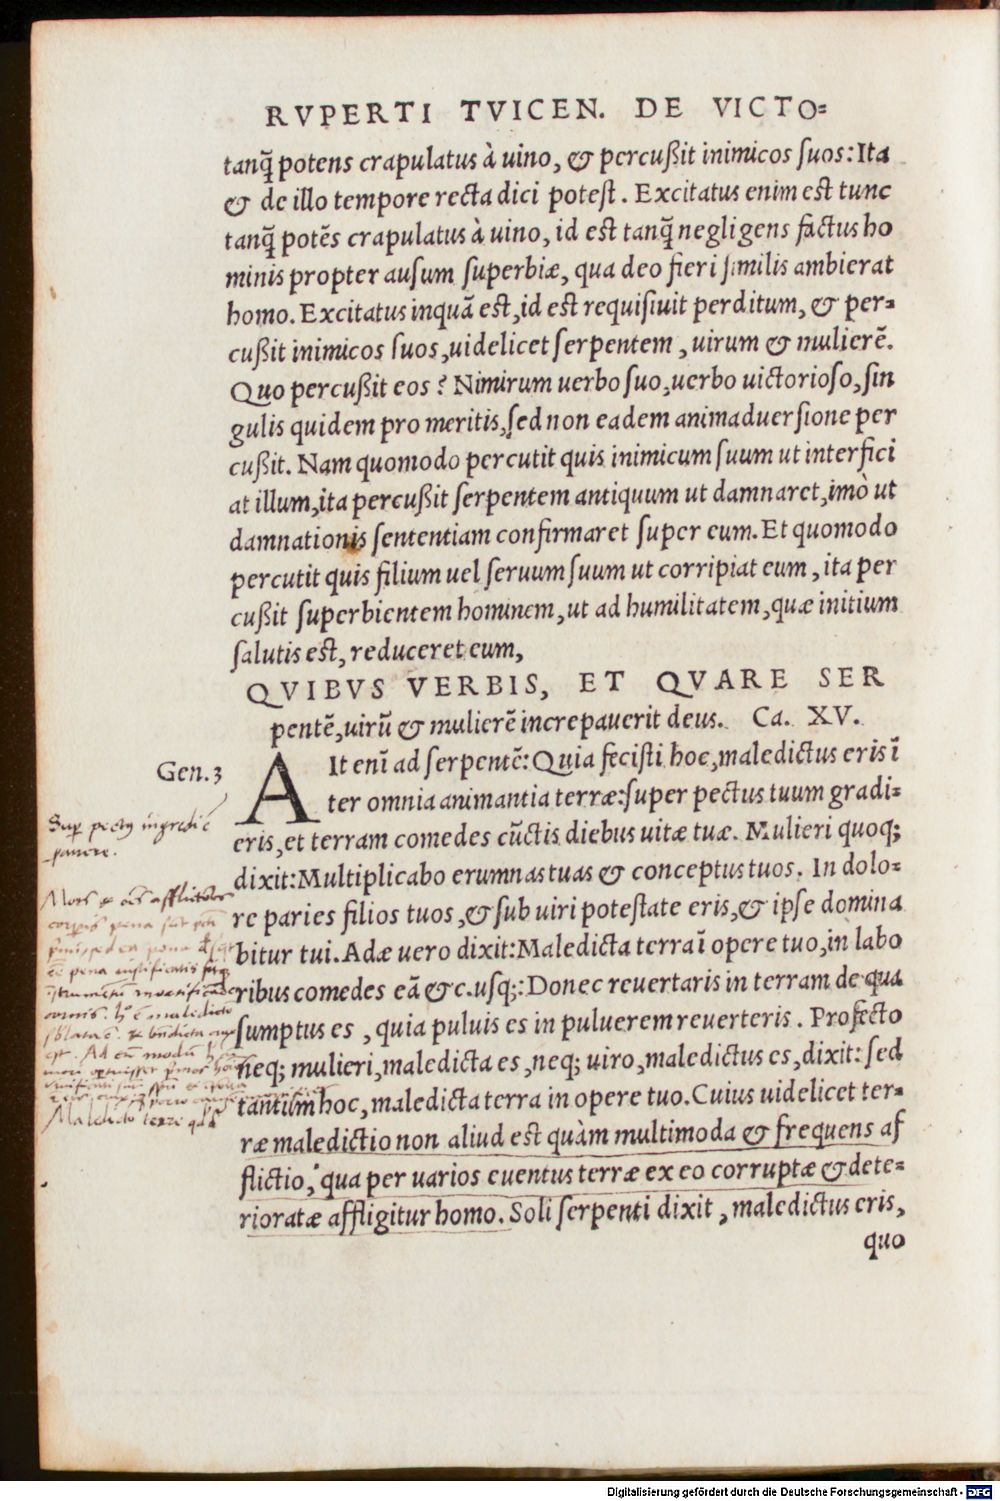 RVPERTI TVICEN. DE VICTO=
tanq̃ potens crapulatus à uino, & percußit inimicos suos: Ita
& de illo tempore recta dici potest. Excitatus enim est tunc
tanq̃ potẽs crapulatus à uino, id est tanq̃ negligens factus ho
minis propter ausum superbiæ, qua deo fieri similis ambierat
homo. Excitatus inquã est, id est requisiuit perditum, & per=
cußit inimicos suos, uidelicet serpentem, uirum & mulierẽ.
Quo percußit eos? Nimirum uerbo suo, uerbo uictorioso, sin
gulis quidem pro meritis, sed non eadem animaduersione per
cußit. Nam quomodo percutit quis inimicum suum ut interfici
at illum, ita percußit serpentem antiquum ut damnaret, imò ut
damnationis sententiam confirmaret super eum. Et quomodo
percutit quis filium uel seruum suum ut corripiat eum, ita per
cußit superbientem hominem, ut ad humilitatem, quæ initium
salutis est, reduceret eum,
QVIBVS VERBIS, ET QVARE SER
pentẽ, uirũ & mulierẽ increpauerit deus. Ca. XV.
Gen. 3
AIt enĩ ad serpentẽ: Quia fecisti hoc, maledictus eris ĩ
ter omnia animantia terræ: super pectus tuum gradi=
eris, et terram comedes cũctis diebus uitæ tuæ. Mulieri quoq;
dixit: Multiplicabo erumnas tuas & conceptus tuos. In dolo=
re paries filios tuos, & sub uiri potestate eris, & ipse domina
bitur tui. Adæ uero dixit: Maledicta terra ĩ opere tuo, in labo
ribus comedes eã &c. usq;: Donec reuertaris in terram de qua
sumptus es, quia puluis es in puluerem reuerteris. Profecto
neq; mulieri, maledicta es, neq; uiro, maledictus es, dixit: sed
tantum hoc, maledicta terra in opere tuo. Cuius uidelicet ter=
ræ maledictio non aliud est quàm multimoda & frequens af
flictio, qua per varios euentus terræ ex eo corruptæ & dete=
rioratæ affligitur homo. Soli serpenti dixit, maledictus eris,
quo
Digitalisierung gefördert durch die Deutsche Forschungsgemeinschaft - DFG